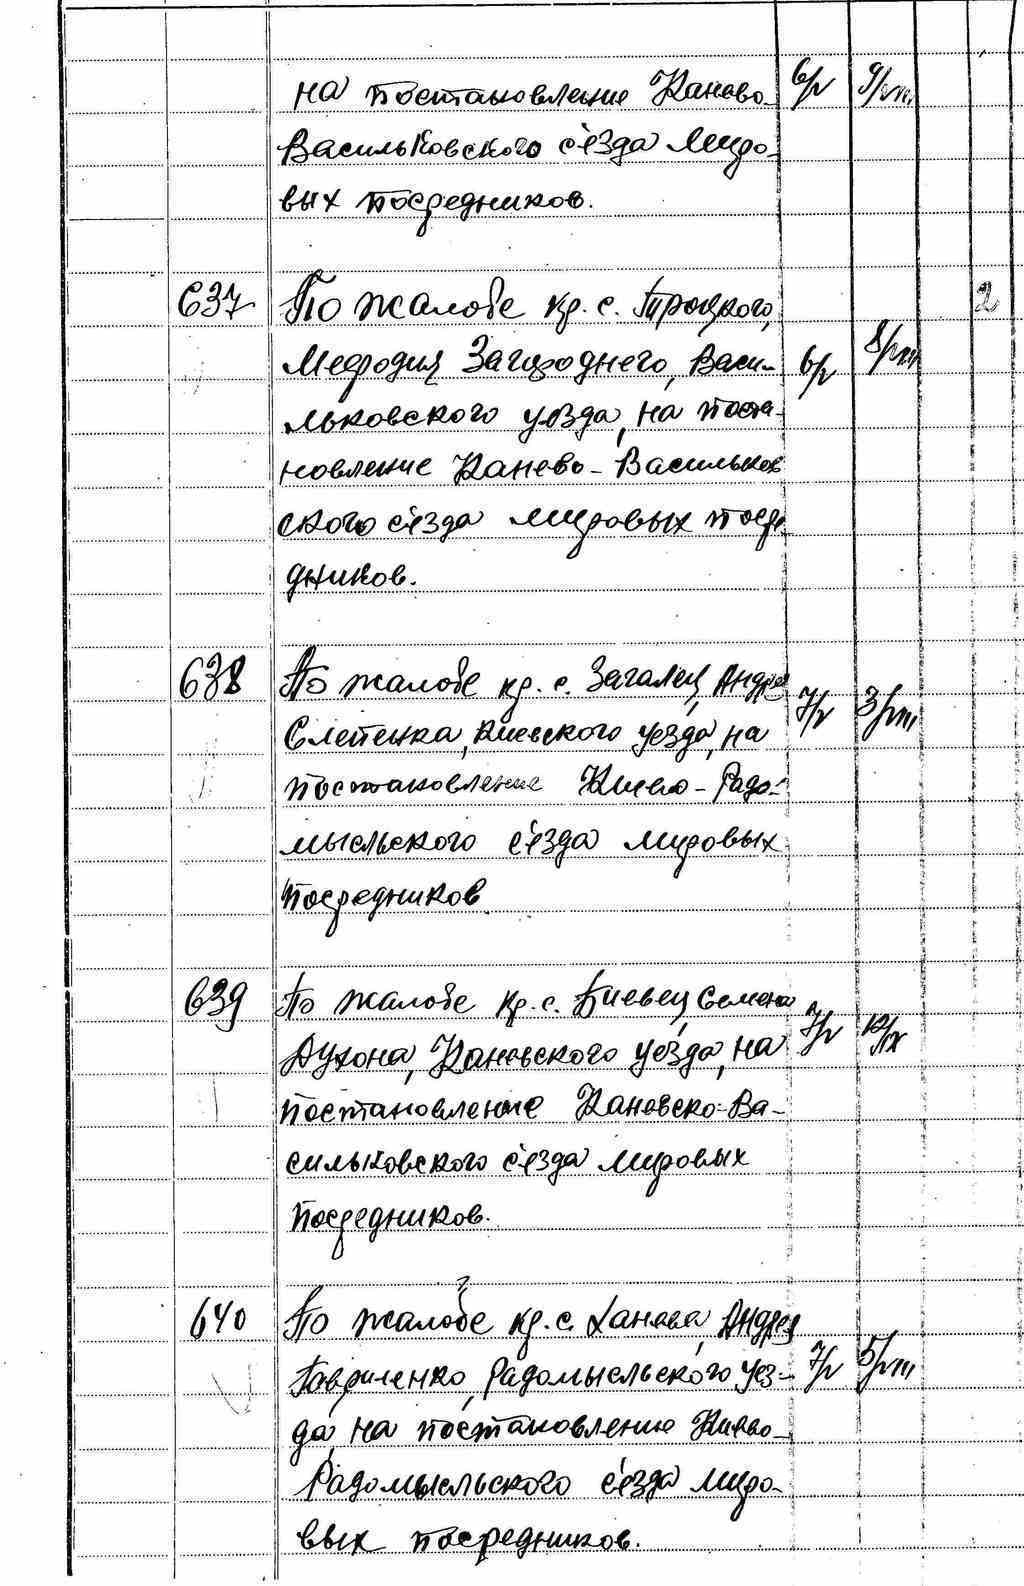 на постановление Канево- 6/V 9/VIII
Васильковского с'езда миро-
вых посредников.
637 По жалобе кр. с. Троцкого, 2
Мефодия Загороднего, Васи- 6/V 8/VIII
льковского уезда, на поста-
новление Канево-Васильков
ского с'езда мировых посре
дников.
638 По жалобе кр. с. Загалец, Андрея
Слепенка, Киевского уезда, на 7/V 3/VIII
постановление Киево-Радо-
мысльского с'езда мировых
посредников
639 По жалобе кр. с. Биевец, Семена
Духона, Каневского уезда, на 7/V 12/IX
постановление Каневско-Ва-
сильковского с'езда мировых
посредников.
640 По жалобе кр. с. Ханева, Андрея
Гавриленко, Радомысльского уез- 7/V 5/VIII
да, на постановление Киево-
Радомысльского с'езда миро-
вых посредников.